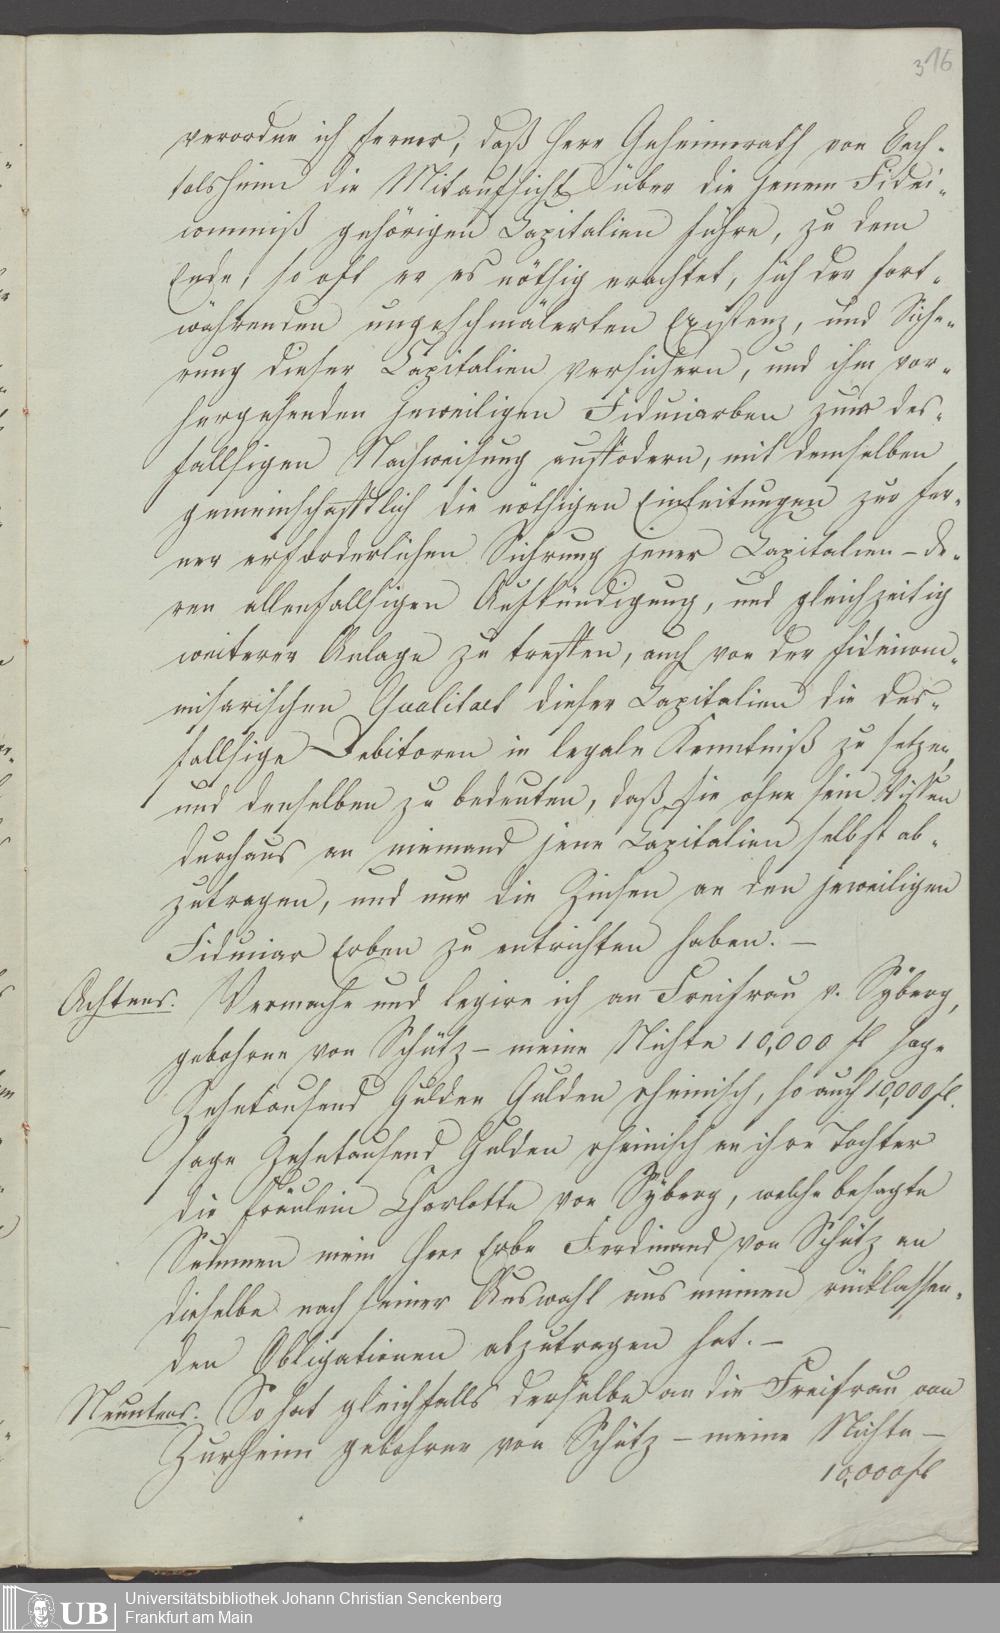 316
verordne ich ferner, daß Herr Geheimrath von Bech-
tolsheim die Mitaufsicht über die jenem Fidei-
commiß gehörigen Capitalien führe, zu dem
Ende, so oft er es nöthig erachtet, sich der fort-
währenden ungeschmälerten Existenz, und Siche-
rung dieser Capitalien versichern, und ihm vor-
hergehenden jeweiligen Fiduciarerben zur des-
fallsigen Nachweisung auffodern, mit demselben
gemeinschafftlich die nöthigen Einleitungen zur fer-
ner erforderlichen Sichrung jener Capitalien – de-
ren allenfallsigen Aufkündigung, und gleichzeitig
weiterer Anlage zu treffen, auch von der fideicom-
misarischen Qualitaet dieser Capitalien die des-
fallsige Debitoren in legale Kenntniß zu setzen,
und denselben zu bedeuten, daß sie ohne sein Wissen
durchaus an niemand jene Capitalien selbst ab-
zutragen, und nur die Zinsen an den jeweiligen
Fiduciar Erben zu entrichten haben. –
Achtens. Vermache und legire ich an Freifrau v. Syberg,
gebohrne von Schütz – meine Nichte 10,000 fl sage
Zehntausend Gulden Gulden rheinisch, so auch 10,000 fl.
sage Zehntausend Gulden rheinisch an ihre Tochter
die Fräulein Charlotte von Syberg, welche besagte
Summen mein Herr Erbe Ferdinand von Schütz an
dieselbe nach seiner Auswahl aus meinen rücklassen-
den Obligationen abzutragen hat. –
Neuntens. So hat gleichfalls derselbe an die Freifrau von
Zurheim gebohrne von Schütz – meine Nichte –
10,000 fl
UB
Universitätsbibliothek Johann Christian Senckenberg
Frankfurt am Main